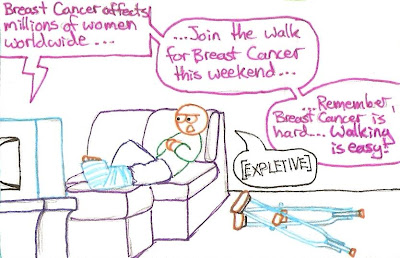 Breast Cancer affects
millions of women
worldwide ...
...Join the walk
for Breast Cancer
this weekend...
...Remember,
Breast Cancer is
hard.... Walking
is easy!
[EXPLETIVE]